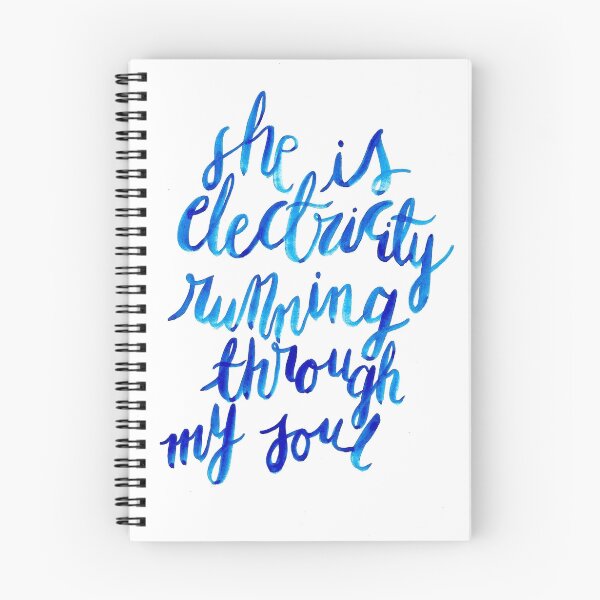 she is
electricity
running
through
my soul